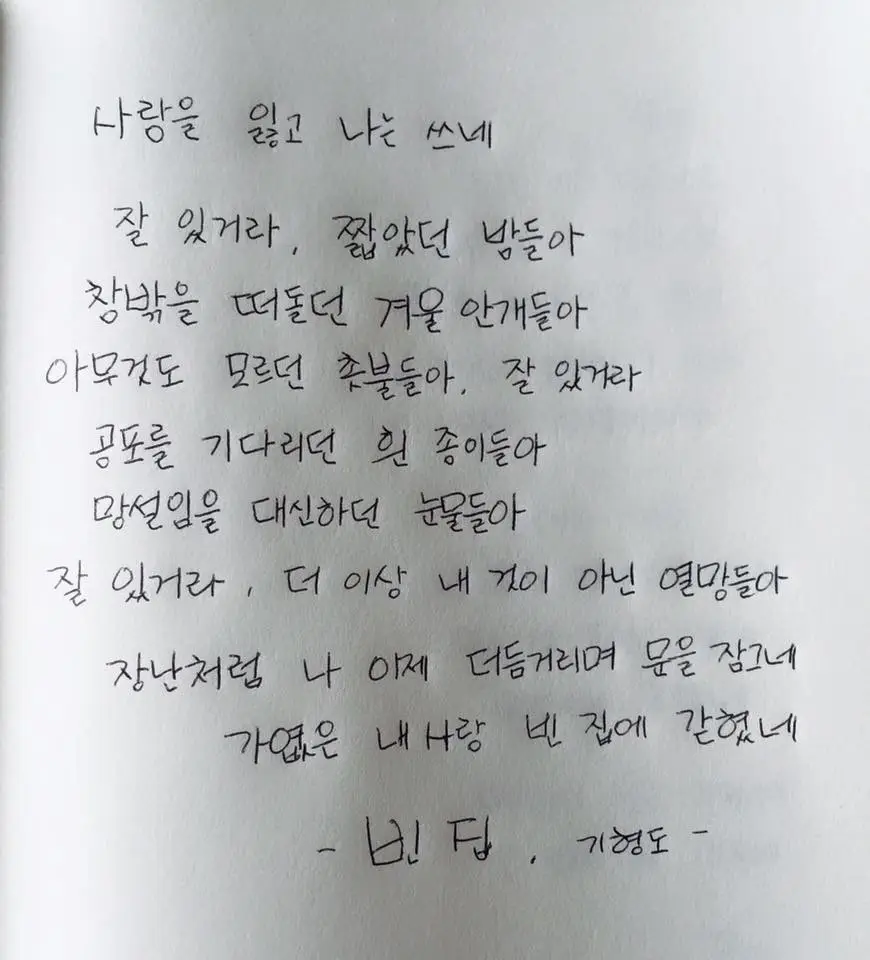 사랑을 잃고 나는 쓰네
잘 있거라, 짧았던 밤들아
창밖을 떠돌던 겨울 안개들아
아무것도 모르던 촛불들아, 잘 있거라
공포를 기다리던 흰 종이들아
망설임을 대신하던 눈물들아
잘 있거라, 더 이상 내 것이 아닌 열망들아
장난처럼 나 이제 더듬거리며 문을 잠그네
가엾은 내 사랑 빈 집에 갇혔네
- 빈 집, 기형도 -